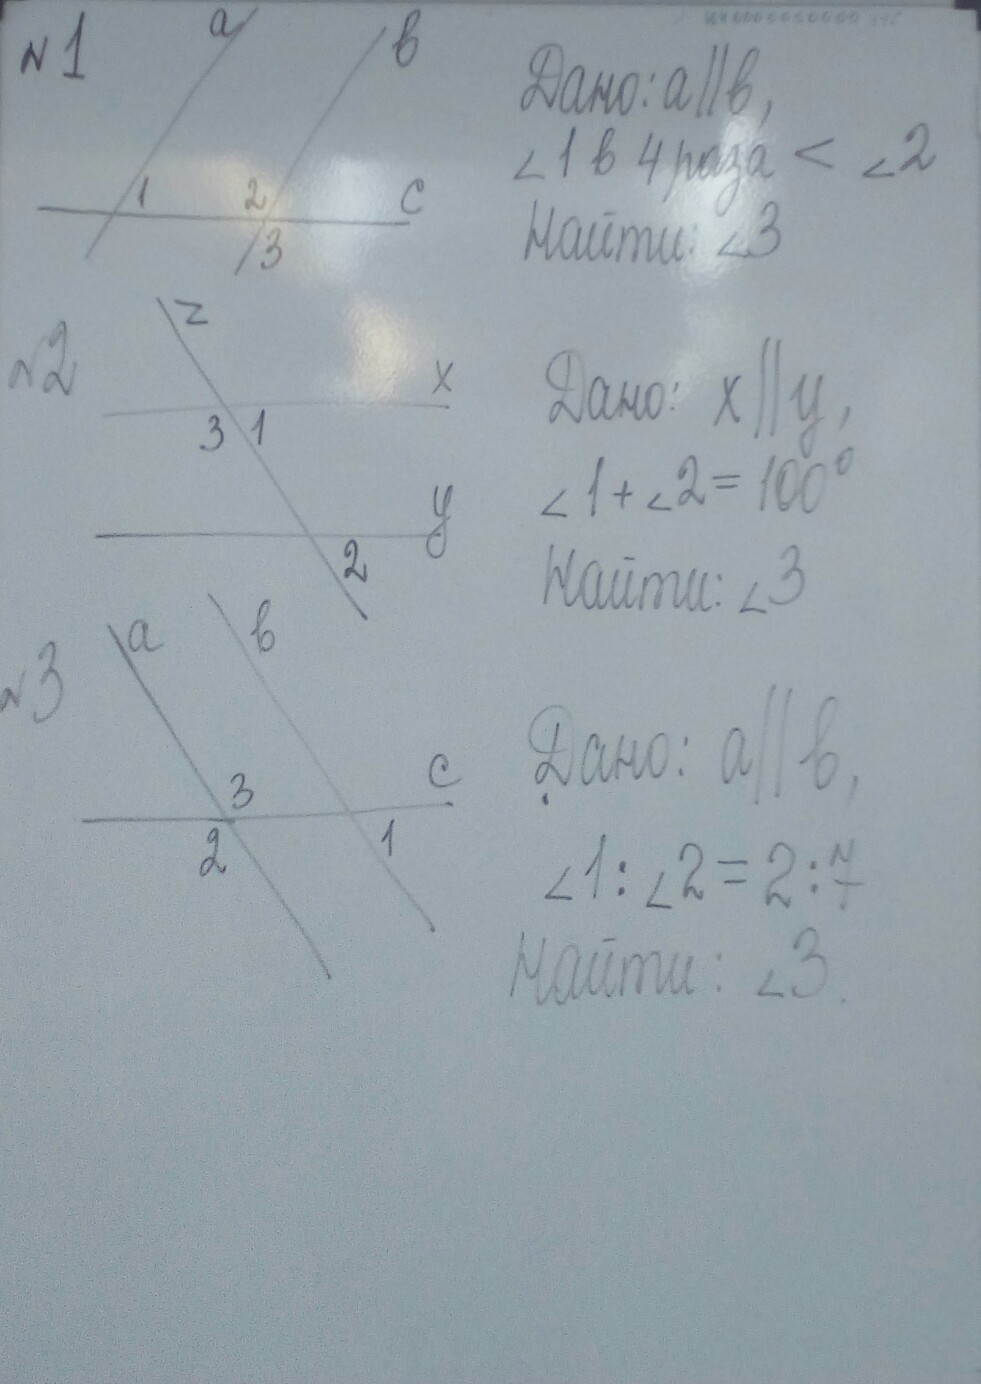 №1
a
в
1
2
3
c
Дано: a||в,
∠1 в 4 раза < ∠2
Найти: ∠3
№2
z
x
3 1
y
2
Дано: x||y,
∠1+∠2=100°
Найти: ∠3
№3
a
в
3
c
2
1
Дано: a||в,
∠1:∠2=2:7
Найти: ∠3.